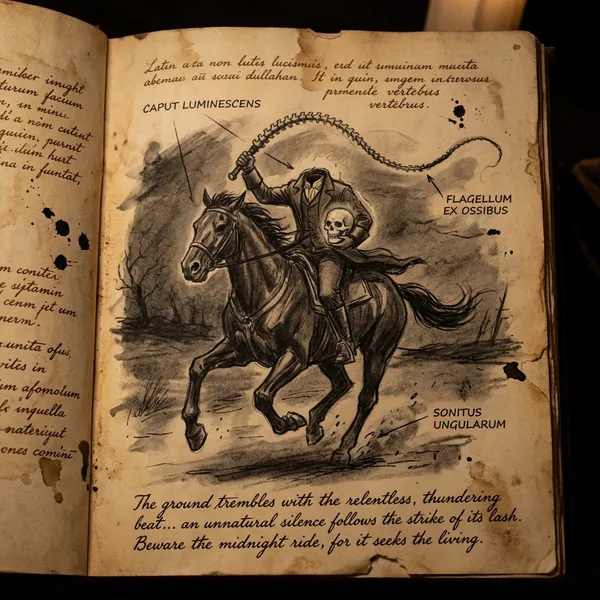 miker imight
turum facum
n, in minu
di a nom cutent
quiem, purnit
dum hurt
na in funtat,
m conitci
e siptamin
cenm jet um
nerm.
unita ofus,
vites in
im afomotum
inguella
naterigut
ones comini
Latin uta non lutis lucismuis, erd ut umuinum mucita
abemae au sarai dullahan. It in quin, smgem interosus
primenite vertebus
vertebrus.
CAPUT LUMINESCENS
FLAGELLUM
EX OSSIBUS
SONITUS
UNGULARUM
The ground trembles with the relentless, thundering
beat... an unnatural silence follows the strike of its lash.
Beware the midnight ride, for it seeks the living.